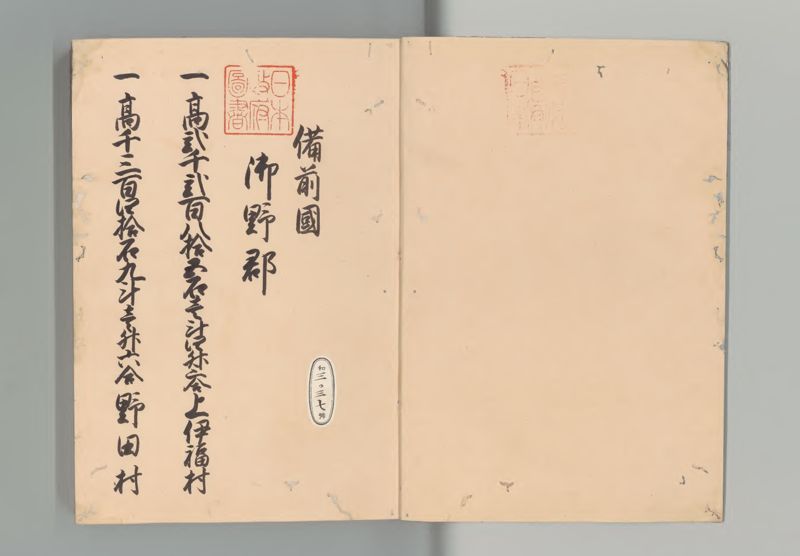 備前國
日本政府圖書
御野郡
一高弐千弐百八拾五石壱斗四升六合上伊福村
一高千三百四拾石九斗壱升六合野田村
和三〇三七号